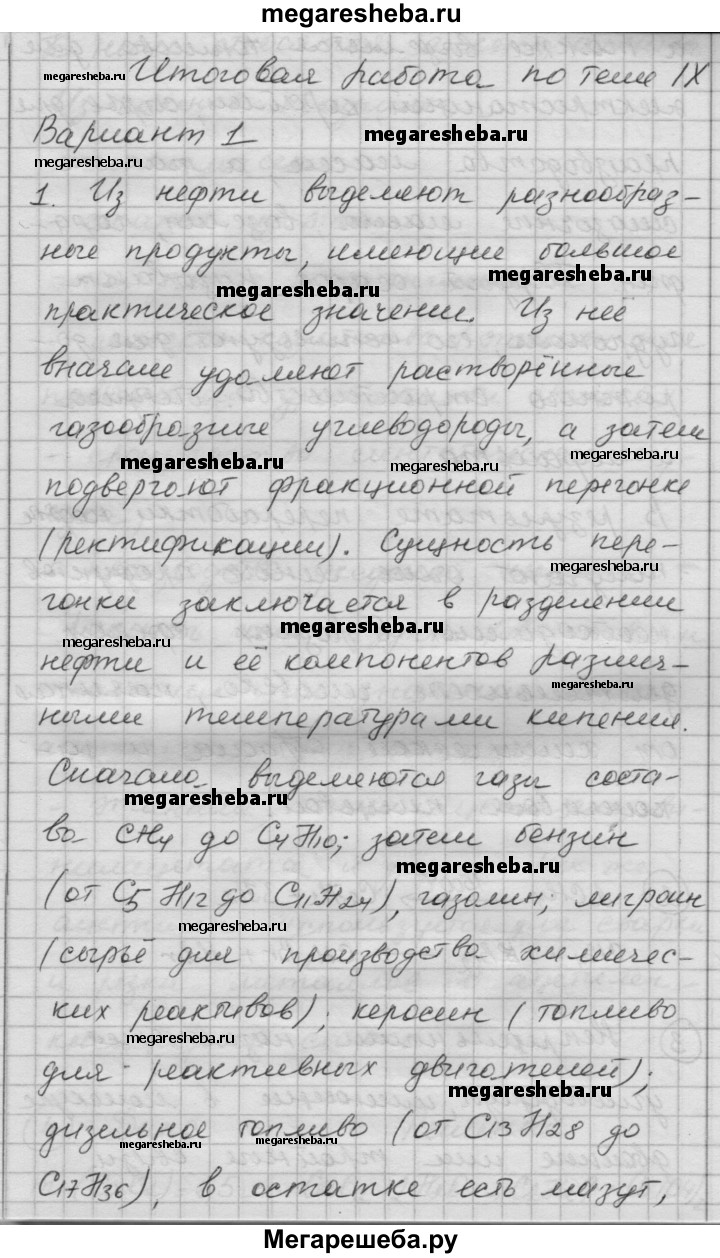 megaresheba.ru
Итоговая работа по теме IX
megaresheba.ru
Вариант 1
megaresheba.ru
megaresheba.ru
1. Из нефти выделяют разнообраз-
ные продукты, имеющие большое
megaresheba.ru
megaresheba.ru
практическое значении. Из неё
вначале удаляют растворённые
газообразные углеводороды, а затем
megaresheba.ru
megaresheba.ru
megaresheba.ru
подвергают фракционной перегонке
(ректификации). Сущность пере-
megaresheba.ru
гонки заключается в разделении
megaresheba.ru
megaresheba.ru
нефти и её компонентов различ-
megaresheba.ru
ными температурами кипения.
Сначала выделяются газы соста-
megaresheba.ru
ва CH4 до C4H10; затем бензин
megaresheba.ru
(от C5H12 до C11H24), газолин; лигроин
(сырьё для производства химичес-
ких реактивов); керосин (топливо
megaresheba.ru
для реактивных двигателей);
megaresheba.ru
дизельное топливо (от C13H28 до
megaresheba.ru
megaresheba.ru
C17H36), в остатке есть мазут,
Мегарешеба.ру